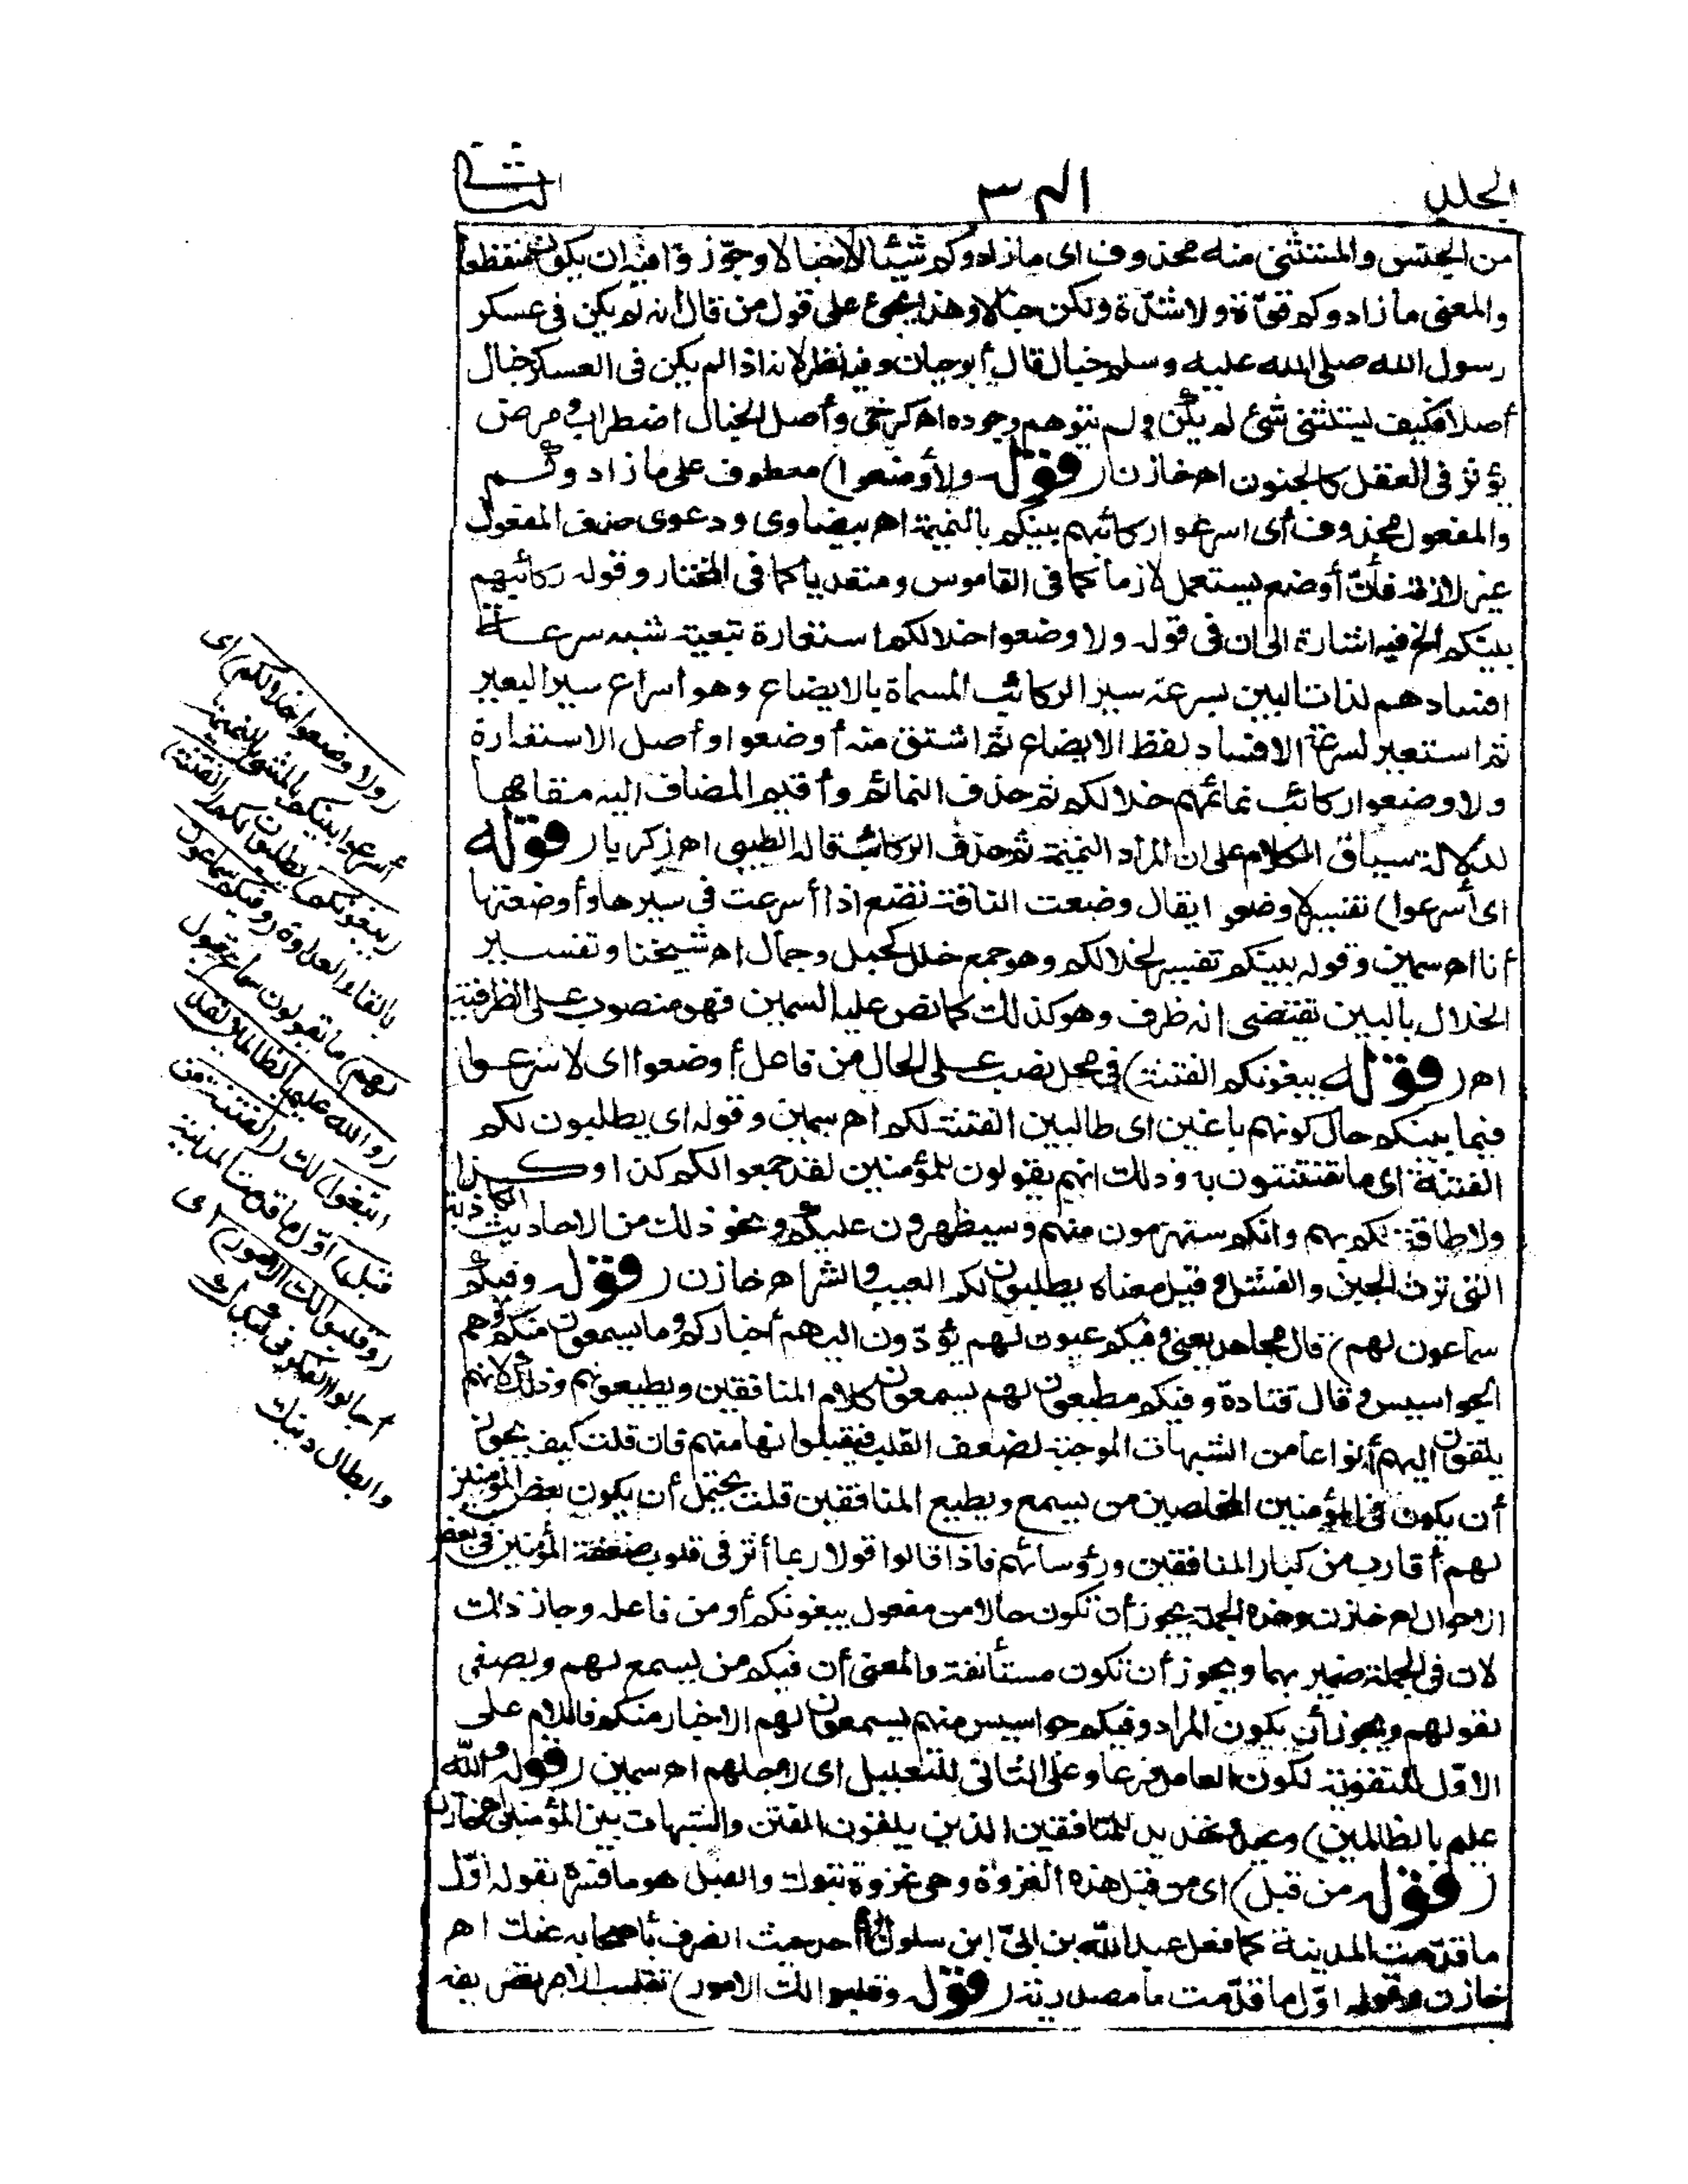 الجلد
الثانى
من الجنس والمستثنى منه محذوف اى مازادوكم شيئا الاخبالا وجوّزوا فيه ان يكون منقطعا
والمعنى مازادوكم قوّة ولا شدّة ولكن خبالا وهذا يجئ على قول من قال أنه لم يكن فى عسكر
رسول الله صلى الله عليه وسلم خبال قال أبوحيان وفيه نظر لانه اذا لم يكن فى العسكر خبال
أصلا فكيف يستثنى شئ لم يكن ولم يتوهم وجوده اهـ كرخى وأصل الخبال اضطراب ومرض
يؤثر فى العقل كالجنون اهـ خازن (قوله ولأوضعوا) معطوف على مازادوكم
والمفعول محذوف أى اسرعوا ركائبهم بينكم بالنميمة اهـ بيضاوى ودعوى حذف المفعول
غير لازمة فأنّ أوضع يستعمل لازما كما فى القاموس ومتعديا كما فى المختار وقوله ركائبهم
بينكم الخ فيه اشارة الى ان فى قوله ولا وضعوا خلالكم استعارة تبعية شبه سرعة
افسادهم لذات البين بسرعة سير الركائب المسماة بالايضاع وهو اسراع سير البعير
ثم استعير لسرعة الافساد لفظ الايضاع ثم اشتق منه أوضعوا وأصل الاستعارة
ولا وضعوا ركائب نمائمهم خلالكم ثم حذف النمائم وأقيم المضاف اليه مقامها
لدلالة سياق الكلام على ان المراد النميمة ثم حذف الركائب قاله الطيبى اهـ زكريا (قوله
اى أسرعوا) تفسير لا وضعوا يقال وضعت الناقة تضع اذا أسرعت فى سيرها وأوضعتها
أنا اهـ سمين وقوله بينكم تفسير لخلالكم وهو جمع خلل كجبل وجبال اهـ شيخنا وتفسير
الخلال بالبين يقتضى انه ظرف وهو كذلك كما نص عليه السمين فهو منصوب على الظرفية
اهـ (قوله يبغونكم الفتنة) فى محل نصب على الحال من فاعل أوضعوا اى لاسرعوا
فيما بينكم حال كونهم باغين اى طالبين الفتنة لكم اهـ سمين وقوله اى يطلبون لكم
الفتنة اى ما تفتتنون به وذلك انهم يقولون للمؤمنين لقد جمعوا لكم كذا وكذا
ولا طاقة لكم بهم وانكم ستهزمون منهم وسيظهرون عليكم ونحو ذلك من الاحاديث الكاذبة
التى تورث الجبن والفشل وقيل معناه يطلبون لكم العيب والشر اهـ خازن (قوله وفيكم
سماعون لهم) قال مجاهد يعنى وفيكم عيون لهم يؤدّون اليهم أخباركم وما يسمعون منكم وهم
الجواسيس وقال قتادة وفيكم مطيعون لهم يسمعون كلام المنافقين ويطيعونهم وذلك لانهم
يلقون اليهم أنواعا من الشبهات الموجبة لضعف القلب فيقبلونها منهم فان قلت كيف يجوز
أن يكون فى المؤمنين المخلصين من يسمع ويطيع المنافقين قلت يحتمل أن يكون بعض المؤمنين
لهم أقارب من كبار المنافقين ورؤسائهم فاذا قالوا قولا ربما أثر فى قلوب ضعفة المؤمنين فى بعض
الاحوال اهـ خازن وهذه الجملة يجوز أن تكون حالا من مفعول يبغونكم أو من فاعله وجاز ذلك
لان فى الجملة ضميريهما ويجوز أن تكون مستأنفة والمعنى أن فيكم من يسمع لهم ويصغى
لقولهم ويجوز أن يكون المراد وفيكم جواسيس منهم يسمعون لهم الاخبار منكم فاللام على
الاوّل للتقوية لكون العامل فرعا وعلى الثانى للتعليل اى لاجلهم اهـ سمين (قوله والله
عليم بالظالمين) وعيد وتهديد للمنافقين الذين يلقون الفتن والشبهات بين المؤمنين اهـ خازن
(قوله من قبل) اى من قبل هذه الغزوة وهى غزوة تبوك والقبل هو ما فسره بقوله اوّل
ما قدّمت المدينة كما فعل عبد الله بن ابىّ ابن سلول أحد حيث انصرف بأصحابه عنك اهـ
خازن وقوله اوّل ما قدّمت ما مصدرية (قوله وقلبوا لك الامور) تقليب الامر
(ولا وضعوا خلالكم) اى
أسرعوا بينكم بالمشى بالنميمة
(يبغونكم) يطلبون لكم (الفتنة)
بالقاء العداوة (وفيكم سماعون
لهم) ما يقولون سماع قبول
(والله عليم بالظالمين لقد
ابتغوا) لك (الفتنة من
قبل) اوّل ما قدمت المدينة
(وقلبوا لك الامور) اى
أجالوا الفكر فى كيدك
وابطال دينك